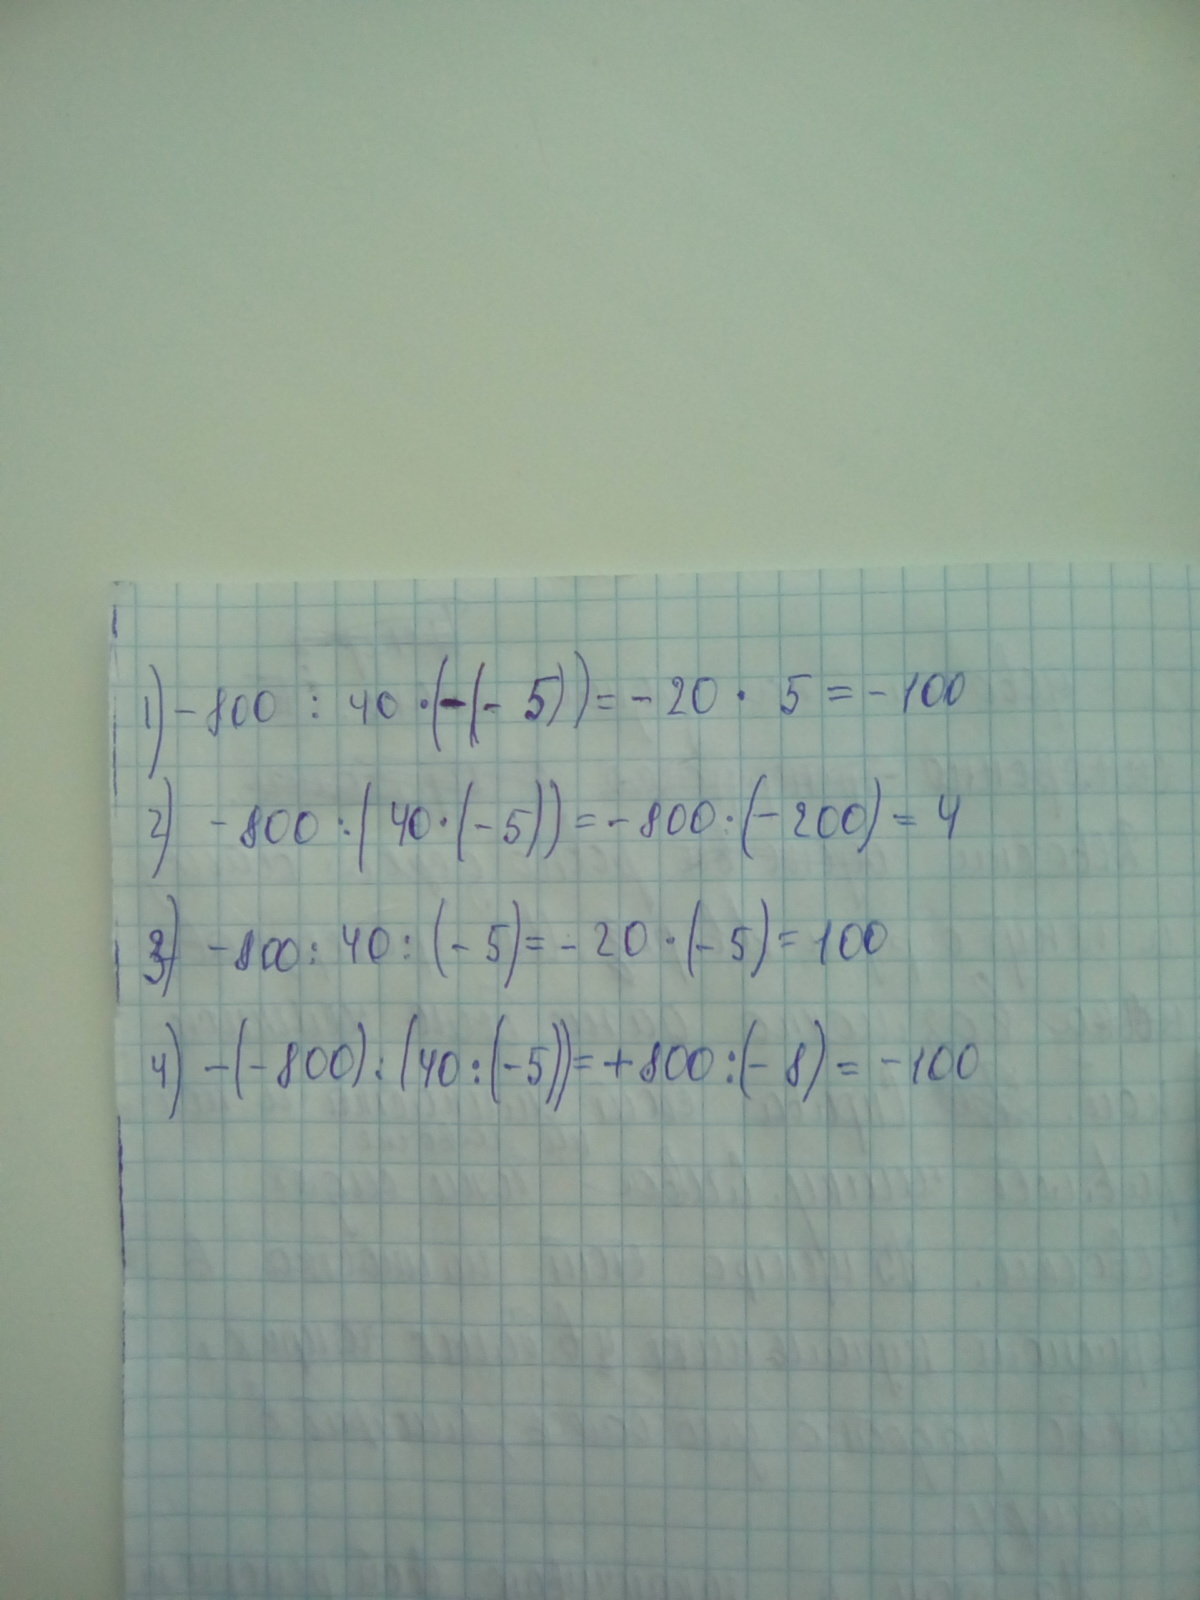 1) -800 : 40 · (-(-5)) = -20 · 5 = -100
2) -800 : (40 · (-5)) = -800 : (-200) = 4
3) -800 : 40 : (-5) = -20 · (-5) = 100
4) -(-800) : (40 : (-5)) = +800 : (-8) = -100